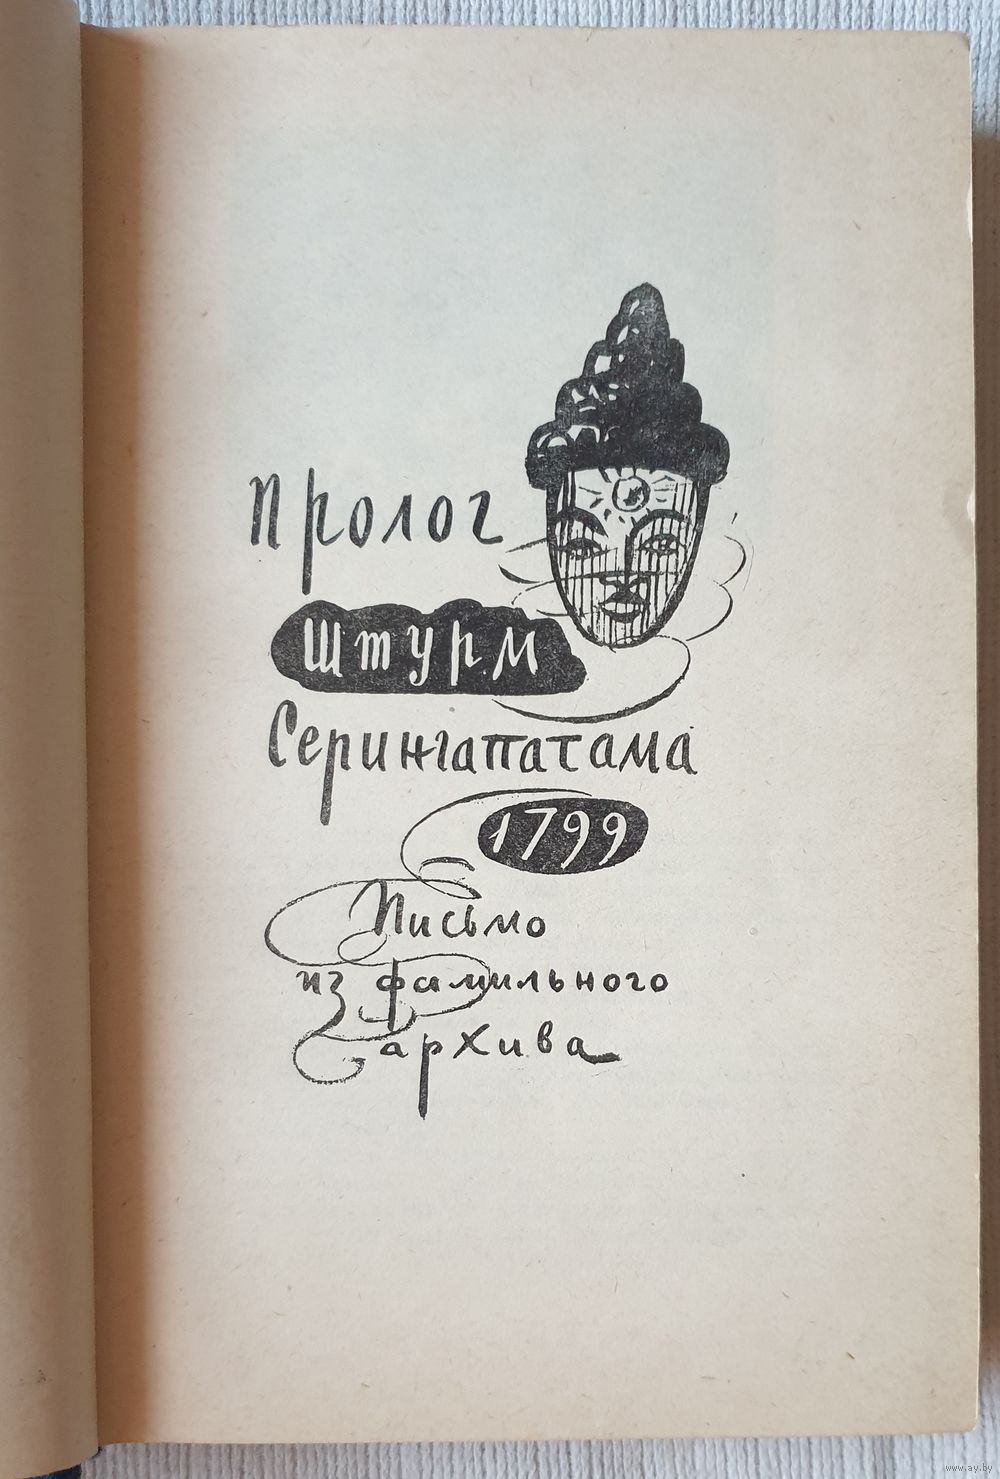 Пролог
Штурм
Серингапатама
1799
Письмо
из фамильного
архива
www.ay.by